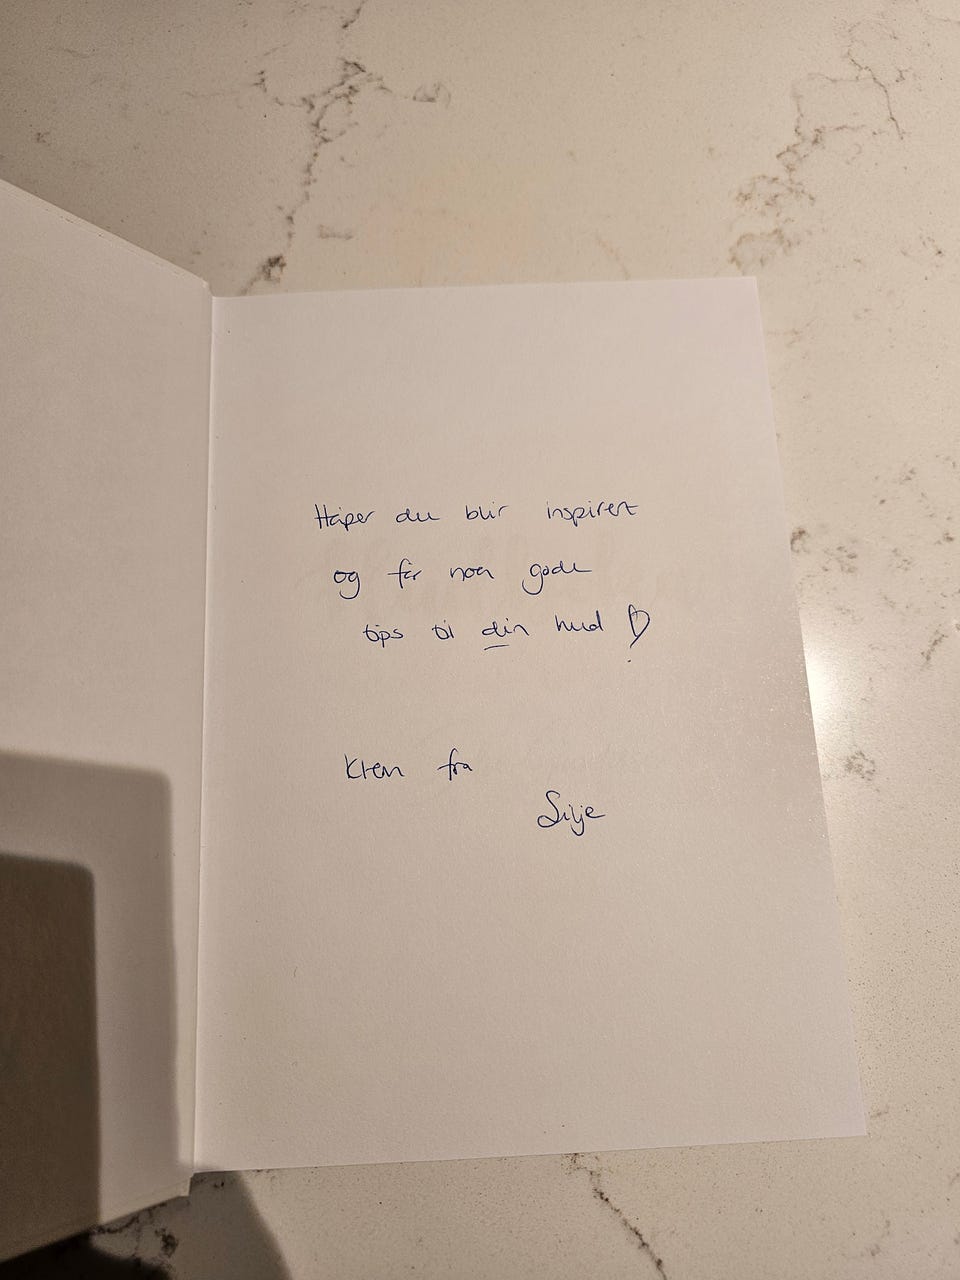 Håper du blir inspirert
og får noen gode
tips til din hud ♡
Klem fra
Silje